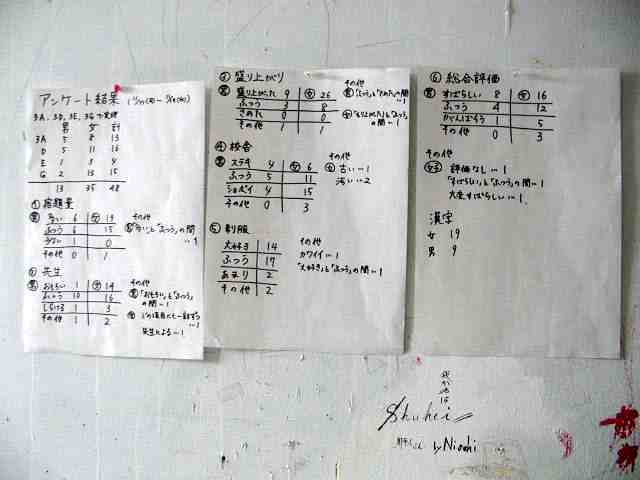 アンケート結果
3A、3D、3E、3Gで実施
男 女 計
3A 5 8 13
D 5 11 16
E 1 3 4
G 2 13 15
13 35 48
① 宿題量
男 多い 6 女 19
ふつう 6 15
少ない 1 0
その他 0 1
その他
男「多い」と「ふつう」の間…1
② 先生
男 おもしろい 1 女 14
ふつう 10 16
しらける 1 3
その他 1 2
その他
男「おもしろい」と「ふつう」の間…1
女 …1
先生による…1
③ 盛り上がり
男 盛り上がった 9 女 26
ふつう 3 8
さめた 0 0
その他 1 1
その他
男「ふつう」と「さめた」の間…1
女「もりあがた」と「ふつう」の間…1
④ 校舎
男 ステキ 4 女 6
ふつう 5 11
ショボイ 4 15
その他 0 3
その他
女 古い…1
汚い…2
⑤ 制服
大好き 14
ふつう 17
あまり 2
その他 2
その他
カワイイ…1
「大好き」と「ふつう」の間…1
⑥ 総合評価
男 すばらしい 8 女 16
ふつう 4 12
がんばろう 1 5
その他 0 3
その他
女子 評価なし…1
「すばらしい」と「ふつう」の間…1
大変すばらしい…1
漢字
女 19
男 9
我が名は
Shuhei
by Niochi